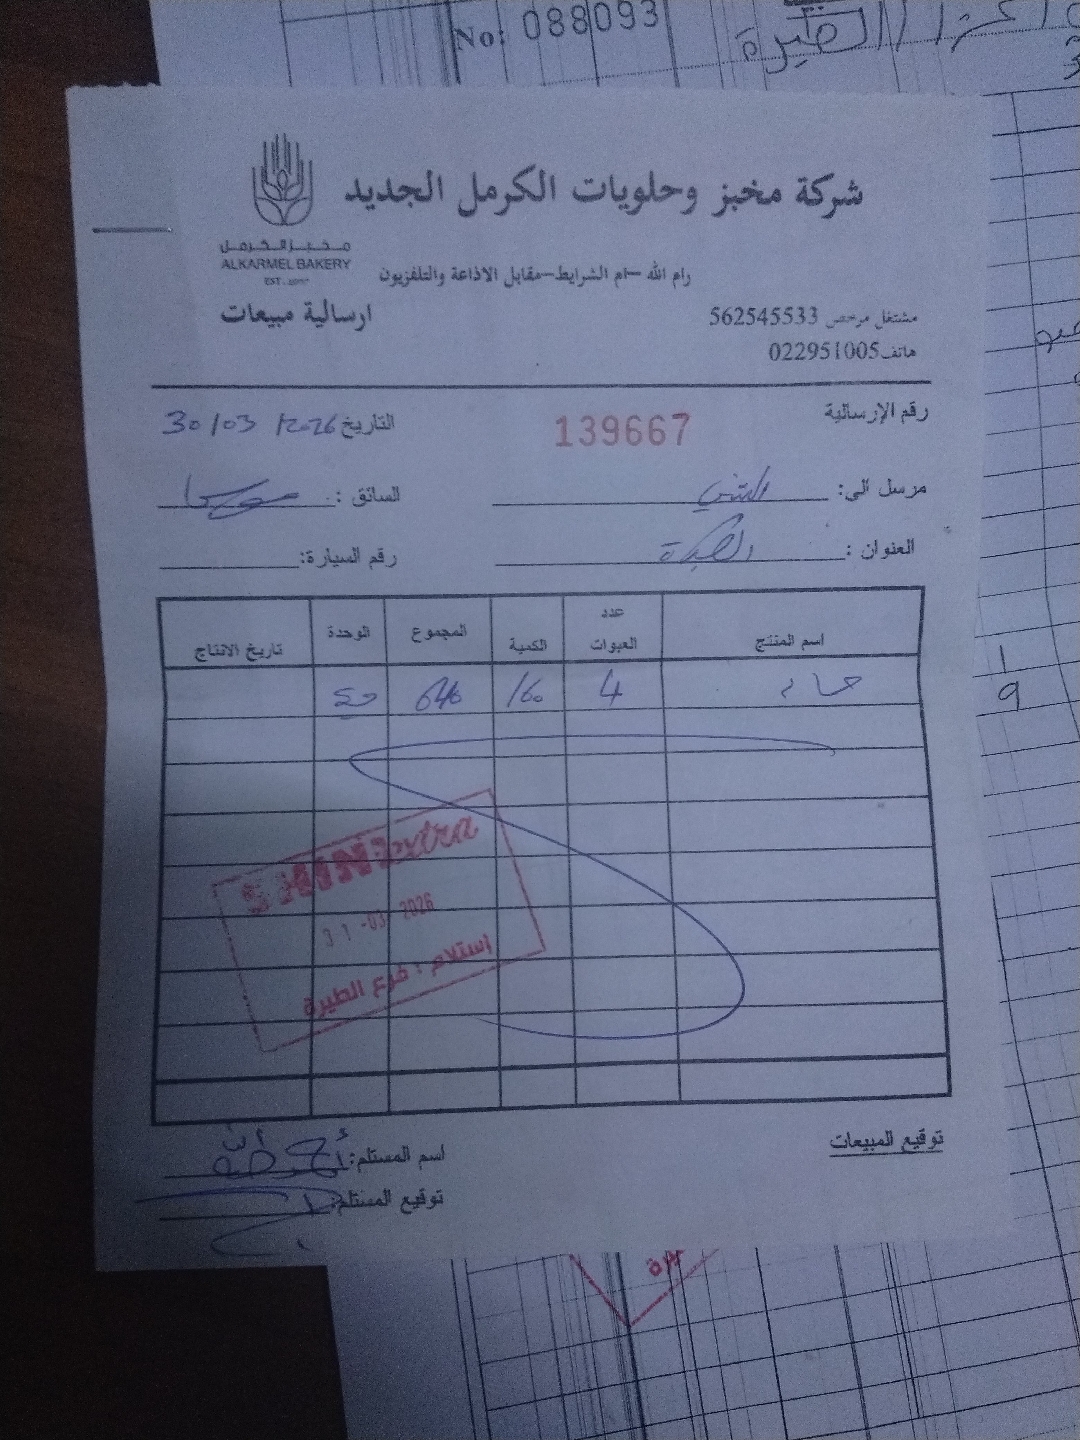 No: 088093
الطيرة
شركة مخبز وحلويات الكرمل الجديد
مخبز الكرمل
ALKARMEL BAKERY
رام الله -ام الشرايط-مقابل الاذاعة والتلفزيون
مشتغل مرخص 562545533
ارسالية مبيعات
هاتف 022951005
رقم الإرسالية
139667
التاريخ 30/03/2026
مرسل الى:
السائق :
العنوان : الطيرة
رقم السيارة:
اسم المنتج عدد العبوات الكمية المجموع الوحدة تاريخ الانتاج
4 160 640
SHINI extra
31-03-2026
استلام : فرع الطيرة
توقيع المبيعات
اسم المستلم:
توقيع المستلم:
1
9